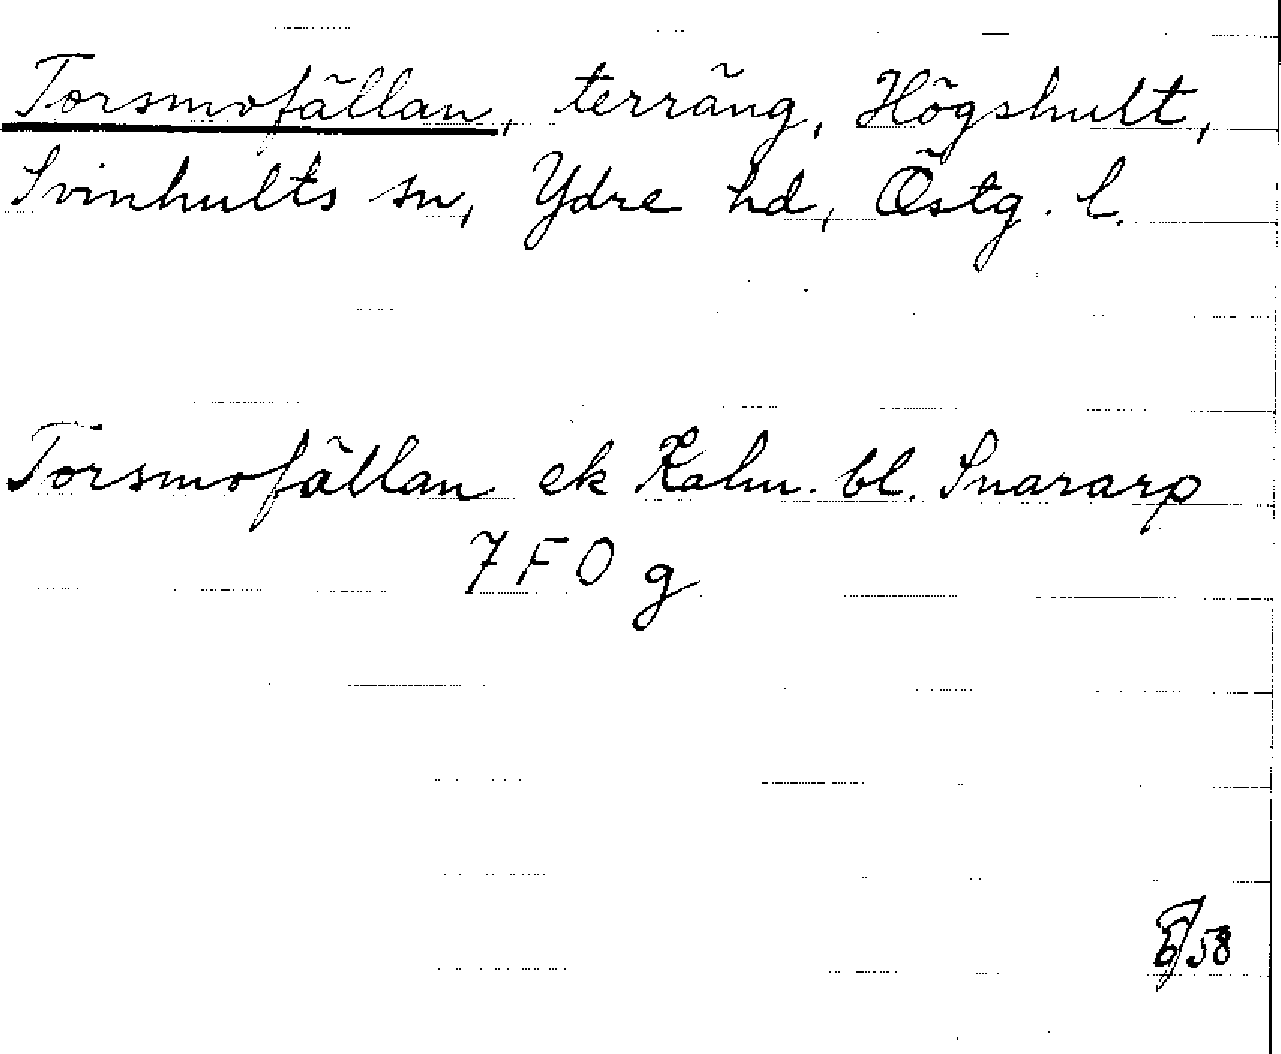 Torsmofällan, terräng, Högshult,
Svinhults sn, Ydre hd, Östg. l.
Torsmofällan ek Kalm. bl. Snararp
7F0 g
58